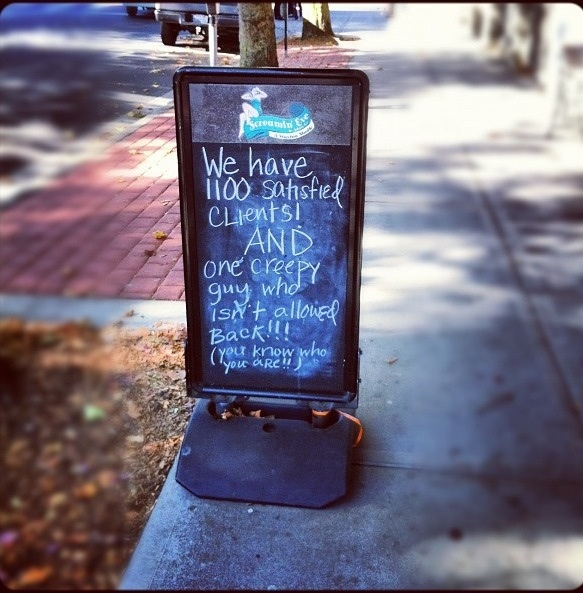 Screamin' Eve
We have
1100 satisfied
CLients!
AND
one creepy
guy who
isn't allowed
BACK!!!
(you know who
you ARE!!)